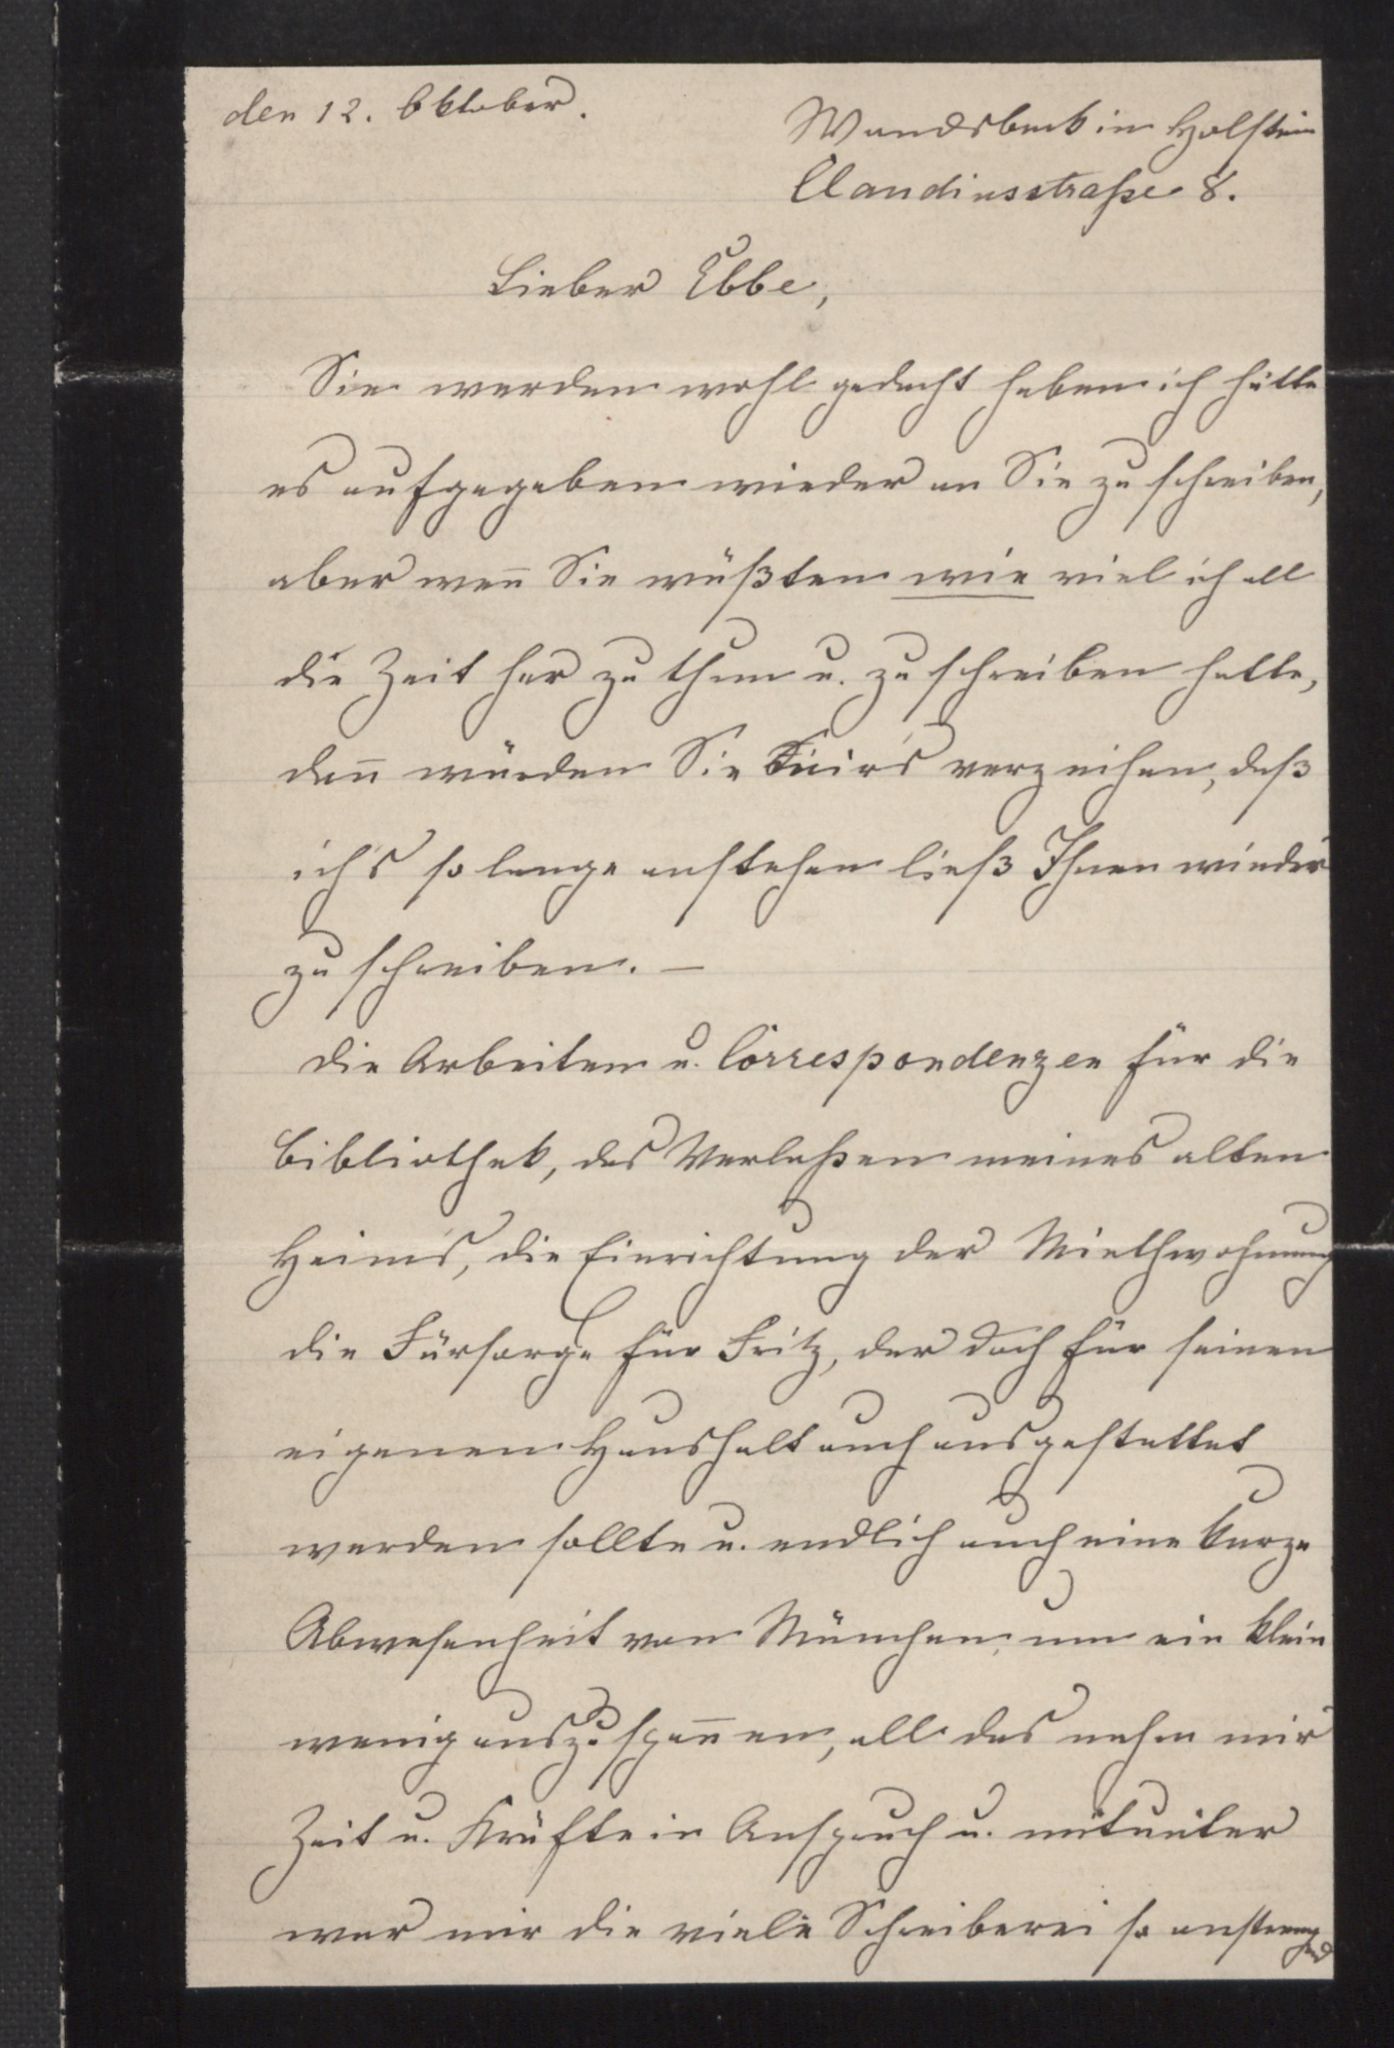 den 12. Oktober.
Wandsbeck in Holstein
Claudiusstraße 8.
Lieber Ebbe,
Sie werden wohl gedacht haben ich hätte
es aufgegeben wieder an Sie zu schreiben,
aber wen̄ Sie wüßten wie viel ich all
die Zeit her zu thun u. zu schreiben hatte,
dan̄ würden Sie mir's verzeihen, daß
ich's so lange anstehen ließ Ihnen wieder
zu schreiben. —
Die Arbeiten u. Correspondenzen für die
Bibliothek, das Verlaßen meines alten
Heim's, die Einrichtung der Miethwohnung
die Fürsorge für Fritz, der doch für seinen
eigenen Haushalt auch ausgestattet
werden sollte u. endlich auch eine kurze
Abwesenheit von München, um ein klein
wenig auszuspan̄en, all das nahm mir
Zeit u. Kräfte in Anspruch u. mitunter
war mir die viele Schreiberei so anstrengend